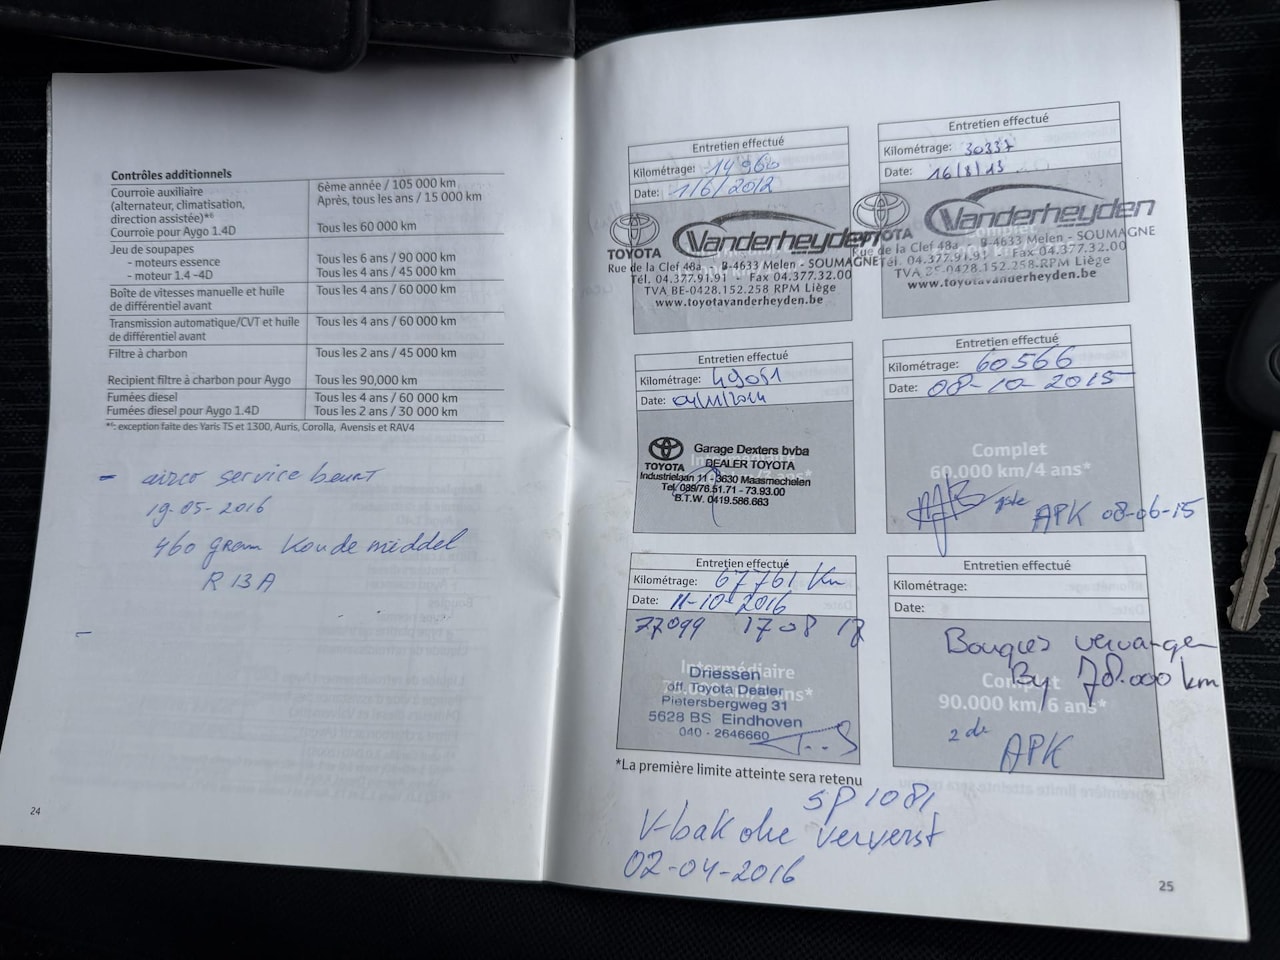 Contrôles additionnels
Courroie auxiliaire
(alternateur, climatisation,
direction assistée)*⁶
6ème année / 105 000 km
Après, tous les ans / 15 000 km
Courroie pour Aygo 1.4D
Tous les 60 000 km
Jeu de soupapes
- moteurs essence
Tous les 6 ans / 90 000 km
- moteur 1.4 -4D
Tous les 4 ans / 45 000 km
Boîte de vitesses manuelle et huile
de différentiel avant
Tous les 4 ans / 60 000 km
Transmission automatique/CVT et huile
de différentiel avant
Tous les 4 ans / 60 000 km
Filtre à charbon
Tous les 2 ans / 45 000 km
Recipient filtre à charbon pour Aygo
Tous les 90,000 km
Fumées diesel
Tous les 4 ans / 60 000 km
Fumées diesel pour Aygo 1.4D
Tous les 2 ans / 30 000 km
*⁶: exception faite des Yaris TS et 1300, Auris, Corolla, Avensis et RAV4
- airco service beurt
19-05-2016
460 gram Koudemiddel
R 13A
24
Entretien effectué
Kilométrage: 14960
Date: 1/6/2012
TOYOTA
Vanderheyden
Rue de la Clef 48a B-4633 Melen - SOUMAGNE
Tél. 04.377.91.91 Fax 04.377.32.00
TVA BE-0428.152.258 RPM Liège
www.toyotavanderheyden.be
Entretien effectué
Kilométrage: 30337
Date: 16/8/13
TOYOTA
Vanderheyden
Rue de la Clef 48a B-4633 Melen - SOUMAGNE
Tél. 04.377.91.91 Fax 04.377.32.00
TVA BE-0428.152.258 RPM Liège
www.toyotavanderheyden.be
Entretien effectué
Kilométrage: 49051
Date:
TOYOTA
Garage Dexters bvba
DEALER TOYOTA
Industrielaan 11 - 3630 Maasmechelen
Tel. 089/76.51.71 - 73.93.00
B.T.W. 0419.566.663
Entretien effectué
Kilométrage: 60566
Date: 08-10-2015
Complet
60.000 km/4 ans*
APK 08-06-15
Entretien effectué
Kilométrage: 67761 Km
Date: 11-10-2016
77099 17 08 17
Intermédiaire
Driessen
off. Toyota Dealer
Pietersbergweg 31
5628 BS Eindhoven
040 - 2646660
Entretien effectué
Kilométrage:
Date:
Bougies vervangen
By 78.000 km
Complet
90.000 km/6 ans*
2de
APK
*La première limite atteinte sera retenu
SP 1081
V-bak olie ververst
02-04-2016
25